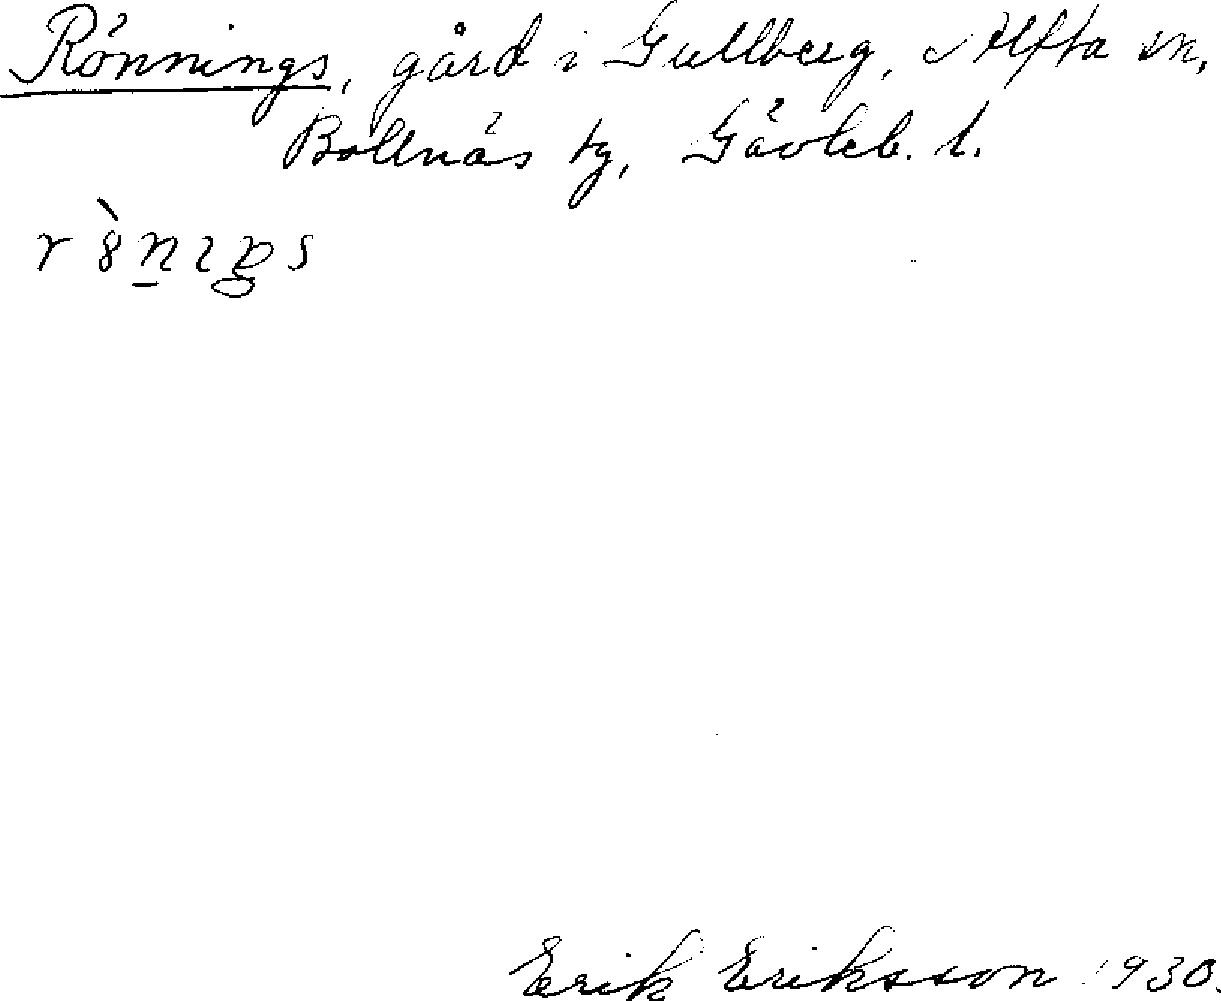 Rönnings, gård i Gullberg, Alfta sn,
Bollnäs tg, Gävleb. l.
Erik Eriksson 1930.